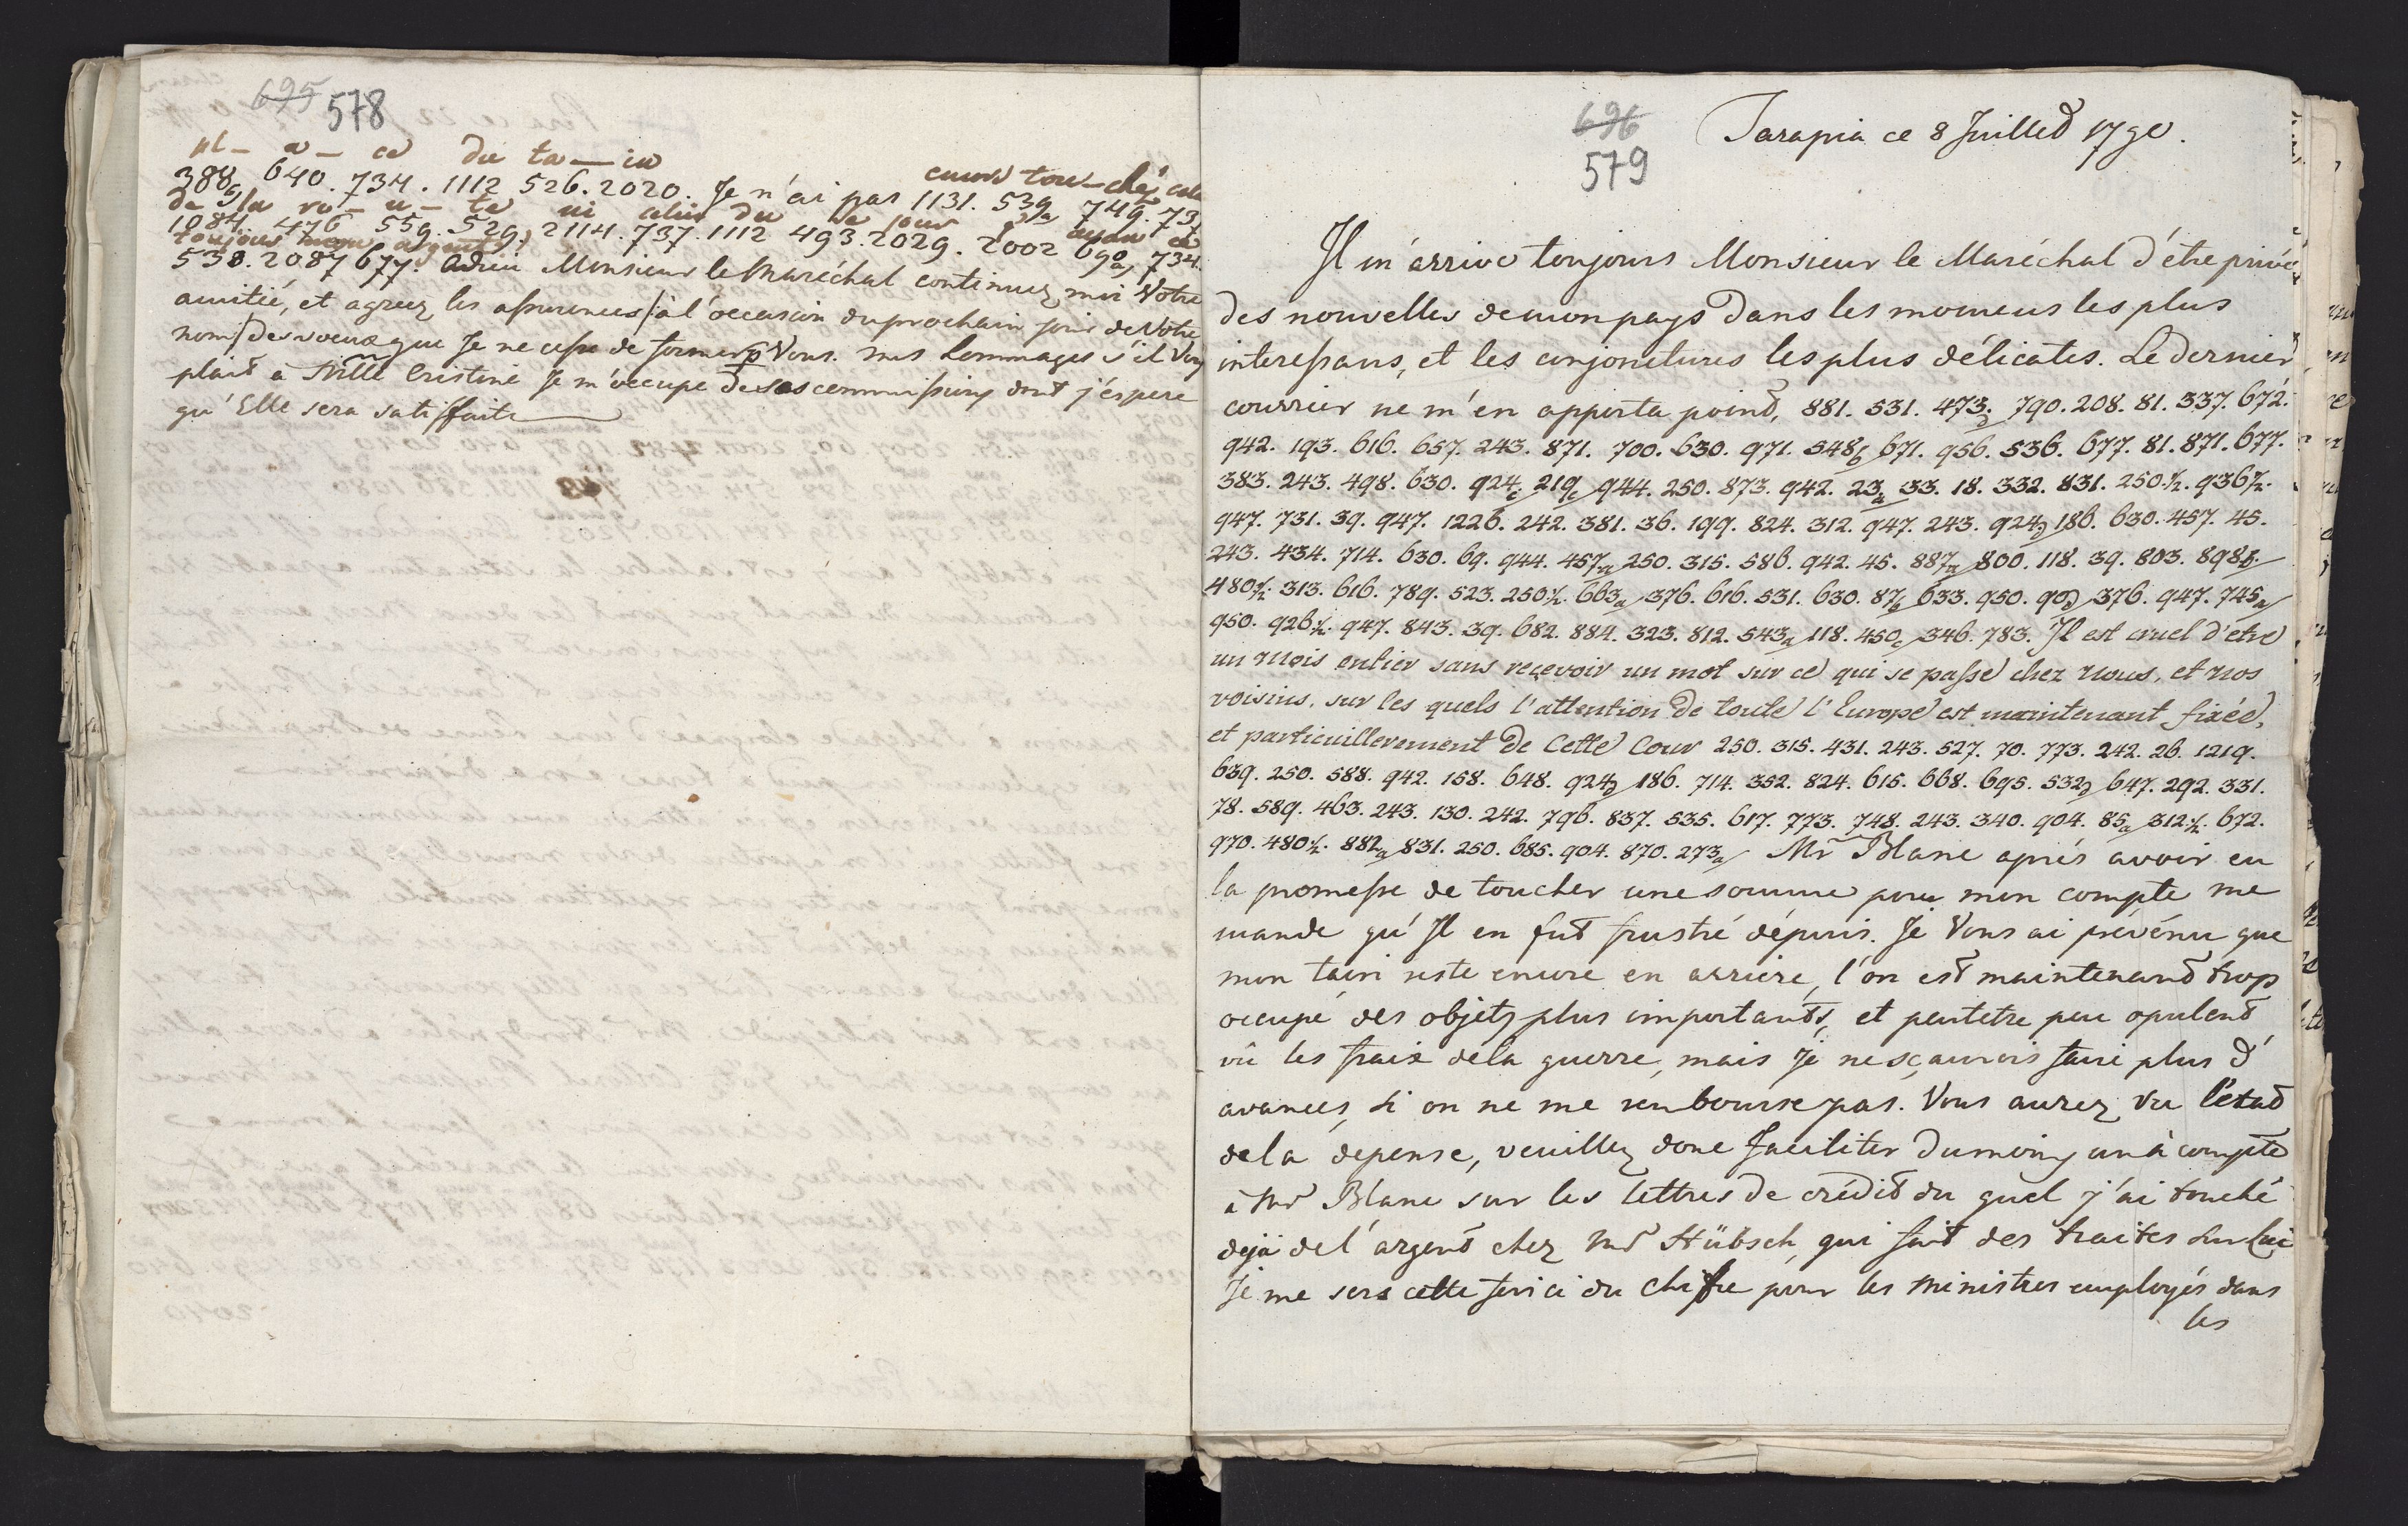 695 578
pl - a - ce du ta - in
encore tou - ché
388a 640. 734. 1112 526. 2020. Je n'ai pas 1131. 539a 749. 73
de la ro - u - te ni celui du se jour ayan ce
1084. 476 559. 529. 2114. 737. 1112 493. 2029. 2002 690a 734.
toujours argent
538. 2087 677. Adieu Monsieur le Maréchal continuez moi Votre
amitié, et agreez les assurences / à l'occasion du prochain jour de Votre
nom / des voeux que Je ne cesse de former p Vous. mes hommages s'il Vous
plait à Mlle Cristine Je m'occupe de ses commissions dont j'éspere
qu'Elle sera satisffaite
696
579
Tarapia ce 8 Juillet 1790.
Il m'arrive toujours Monsieur le Maréchal d'être privé
des nouvelles de mon pays dans les momens les plus
interessans, et les conjonctures les plus délicates. Le dernier
courrier ne m'en apporta point, 881. 531. 473d 790. 208. 81. 337. 672.
942. 193. 616. 657. 243. 871. 700. 630. 971. 548b 671. 956. 536. 677. 81. 871. 677.
383. 243. 498. 630. 924c 219c 944. 250. 873. 942. 23a 33. 18. 332. 831. 250½. 936½.
947. 731. 39. 947. 1226. 242. 381. 36. 199. 824. 312. 947. 243. 924d 186. 630. 457. 45.
243. 434. 714. 630. 69. 944. 457a 250. 315. 586. 942. 45. 887a 800. 118. 39. 803. 898b
480½. 313. 616. 789. 523. 250½. 663a 376. 616. 531. 630. 87b 633. 950. 90d 376. 947. 745a
950. 926½. 947. 843. 39. 682. 884. 323. 812. 543a 118. 450c 346. 783. Il est cruel d'être
un mois entier sans reçevoir un mot sur ce qui se passe chez nous, et nos
voisins, sur les quels l'attention de toute l'Europe est maintenant fixée,
et particuillerement de Cette Cour 250. 315. 431. 243. 527. 70. 773. 242. 26. 1219.
639. 250. 588. 942. 158. 648. 924d 186. 714. 352. 824. 615. 668. 695. 532d 647. 292. 331.
78. 589. 463. 243. 130. 242. 796. 837. 535. 617. 773. 748. 243. 340. 904. 85a 312½. 672.
970. 480½. 882a 831. 250. 685. 904. 870. 273a Mr Blanc aprés avoir eu
la promesse de toucher une somme pour mon compte me
mande qu'Il en fut frustré dépuis. Je Vous ai prévénu que
mon tain reste encore en arriére, l'on est maintenant trop
occupé des objets plus importants, et peutetre peu opulent
vû les fraix de la guerre, mais Je ne sçaurois faire plus d'
avances, si on ne me rembourse pas. Vous aurez vu l'état
de la depense, veuillez donc faciliter dumoins un à compte
à Mr Blanc sur les lettres de crédit du quel j'ai touché
dejà de l'argent chez Mr Hübsch, qui fait des traites sur lui
Je me sers cette fois ci du chifre pour les ministres employés dans
les